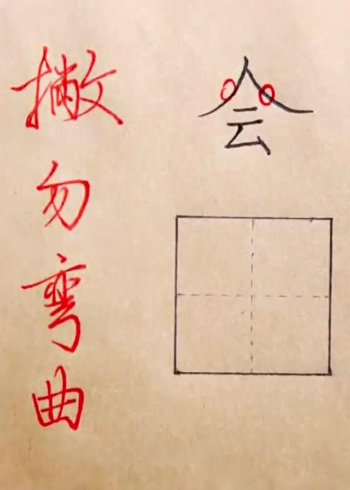 撇勿弯曲
会